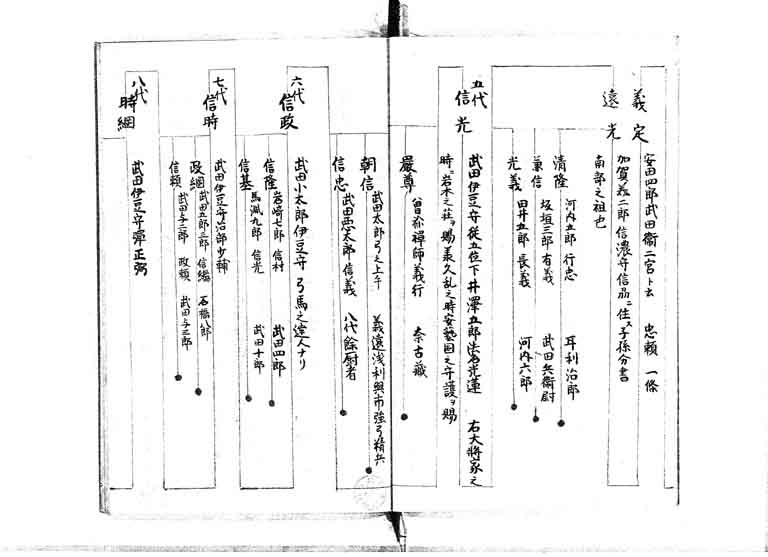 義定 安田四郎武田衛二宮ト云 忠頼 一條
遠光 加賀義二郎信濃守信品ニ住ス子孫分書
南部之祖也
清隆 河内五郎 行忠 耳利治郎
兼信 板垣三郎 有義 武田兵衛尉
光義 田井五郎 長義 河内六郎
五代
信光 武田伊豆守従五位下井澤五郎法名光蓮 右大将家之
時ニ岩木之莊ヲ賜義久乱之時安藝国之守護ヲ賜
嚴尊 曾祢禪師 義行 奈古藏
朝信 武田太郎弓之上手 義遠 浅利與市強弓精兵
信忠 武田悪太郎 信義 八代餘厨者
六代
信政 武田小太郎伊豆守 弓馬之達人ナリ
信隆 岩崎七郎 信村 武田四郎
信基 馬渕九郎 信光 武田十郎
七代
信時 武田伊豆守治部少輔
政綱 武田五郎三郎 信編 石橋八郎
信頼 武田与二郎 政頼 武田与三郎
八代
時綱 武田伊豆守彈正弼